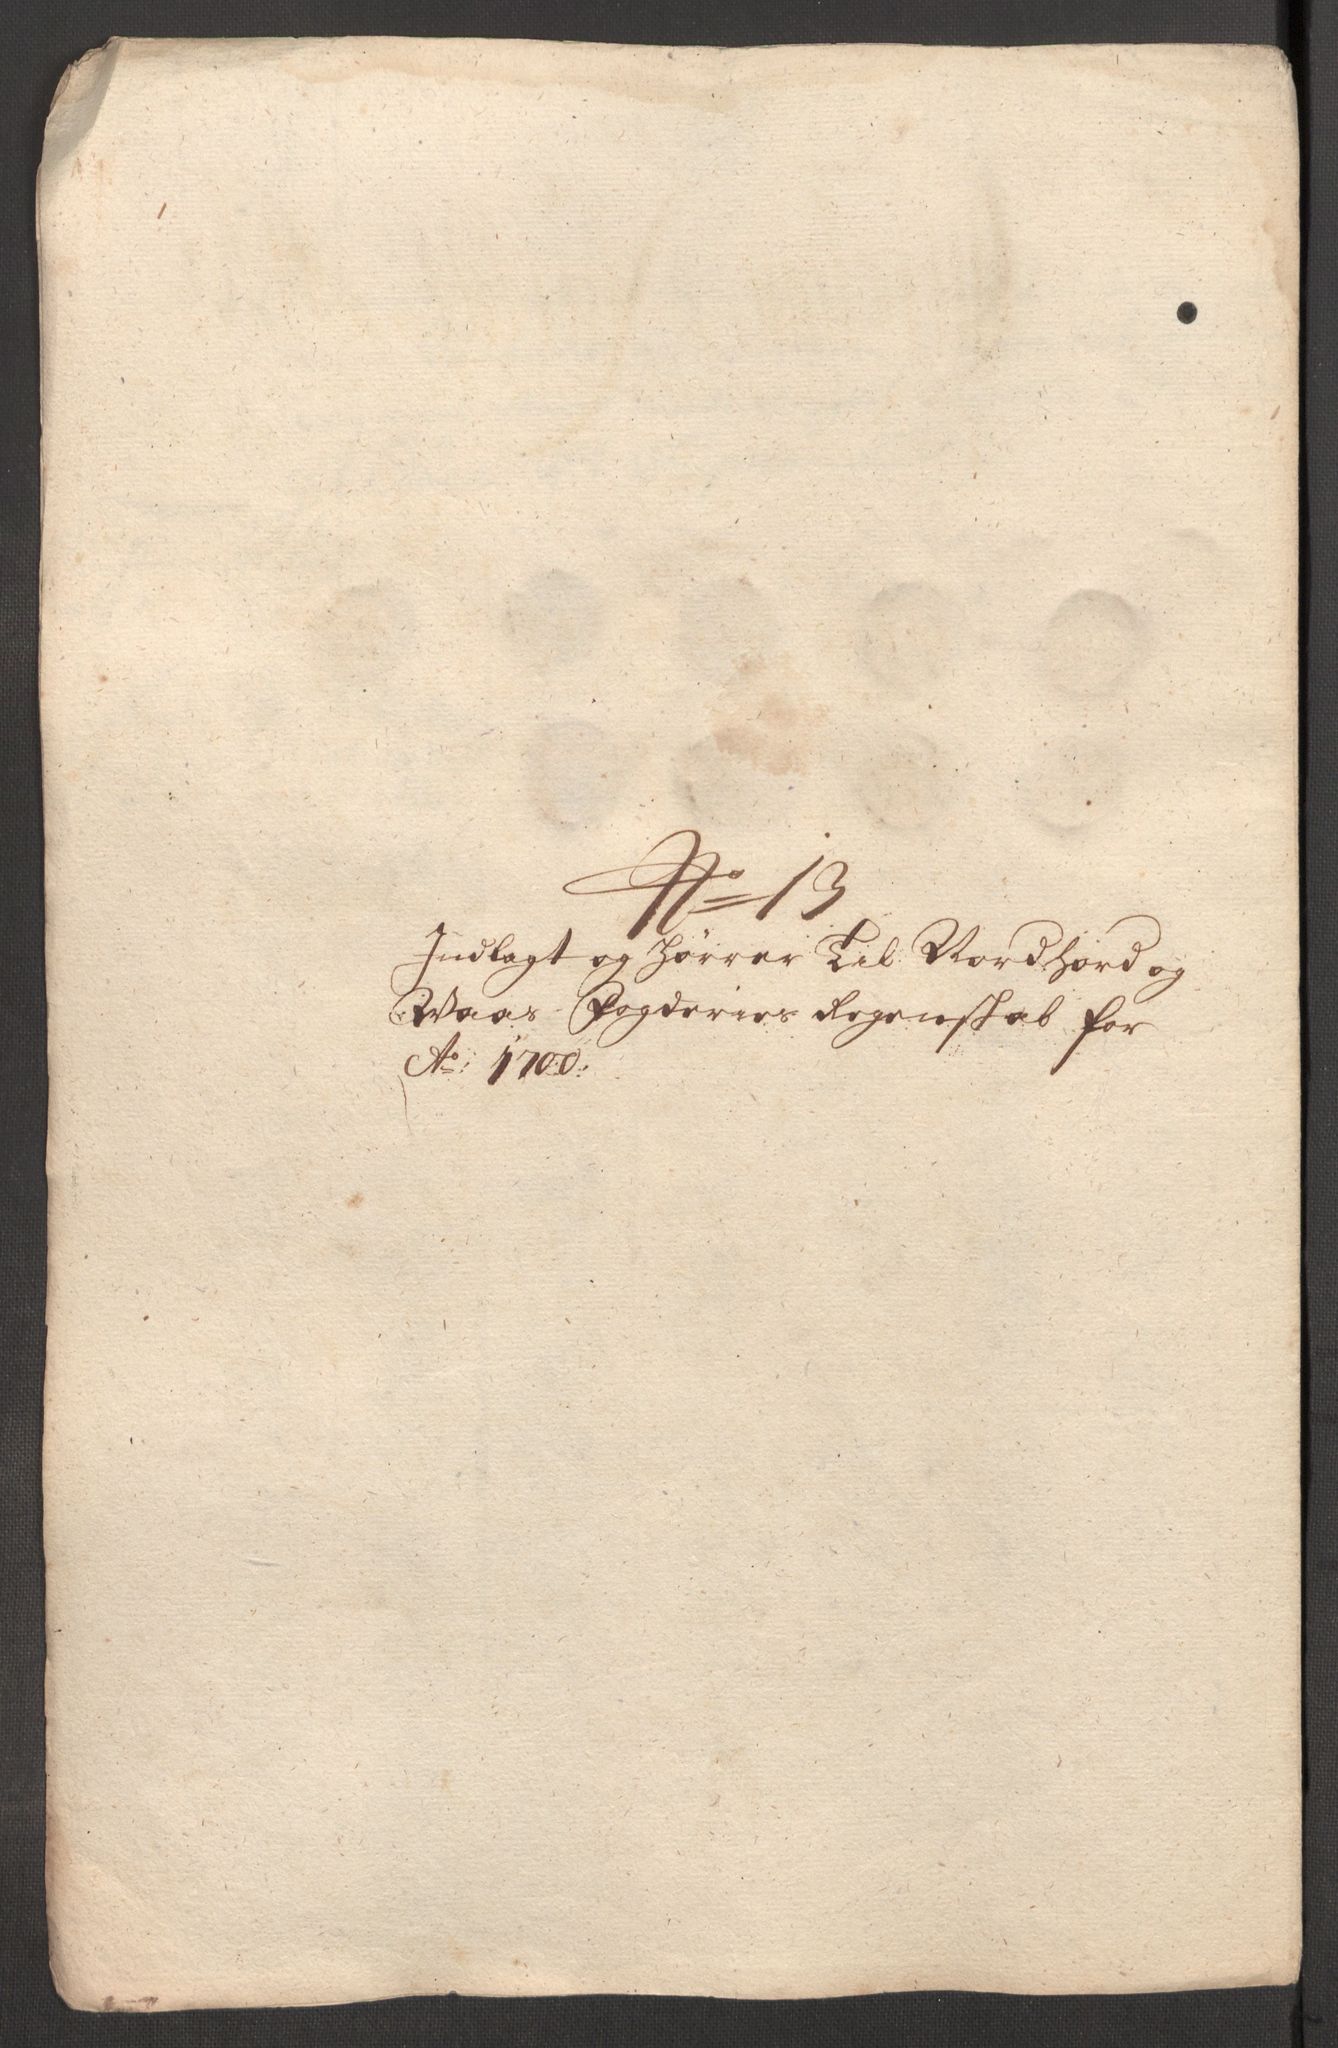 No 13
Indlagt og hörrer Til Nordhord og
Waas Fogderies Regenskab for
Ao: 1700: